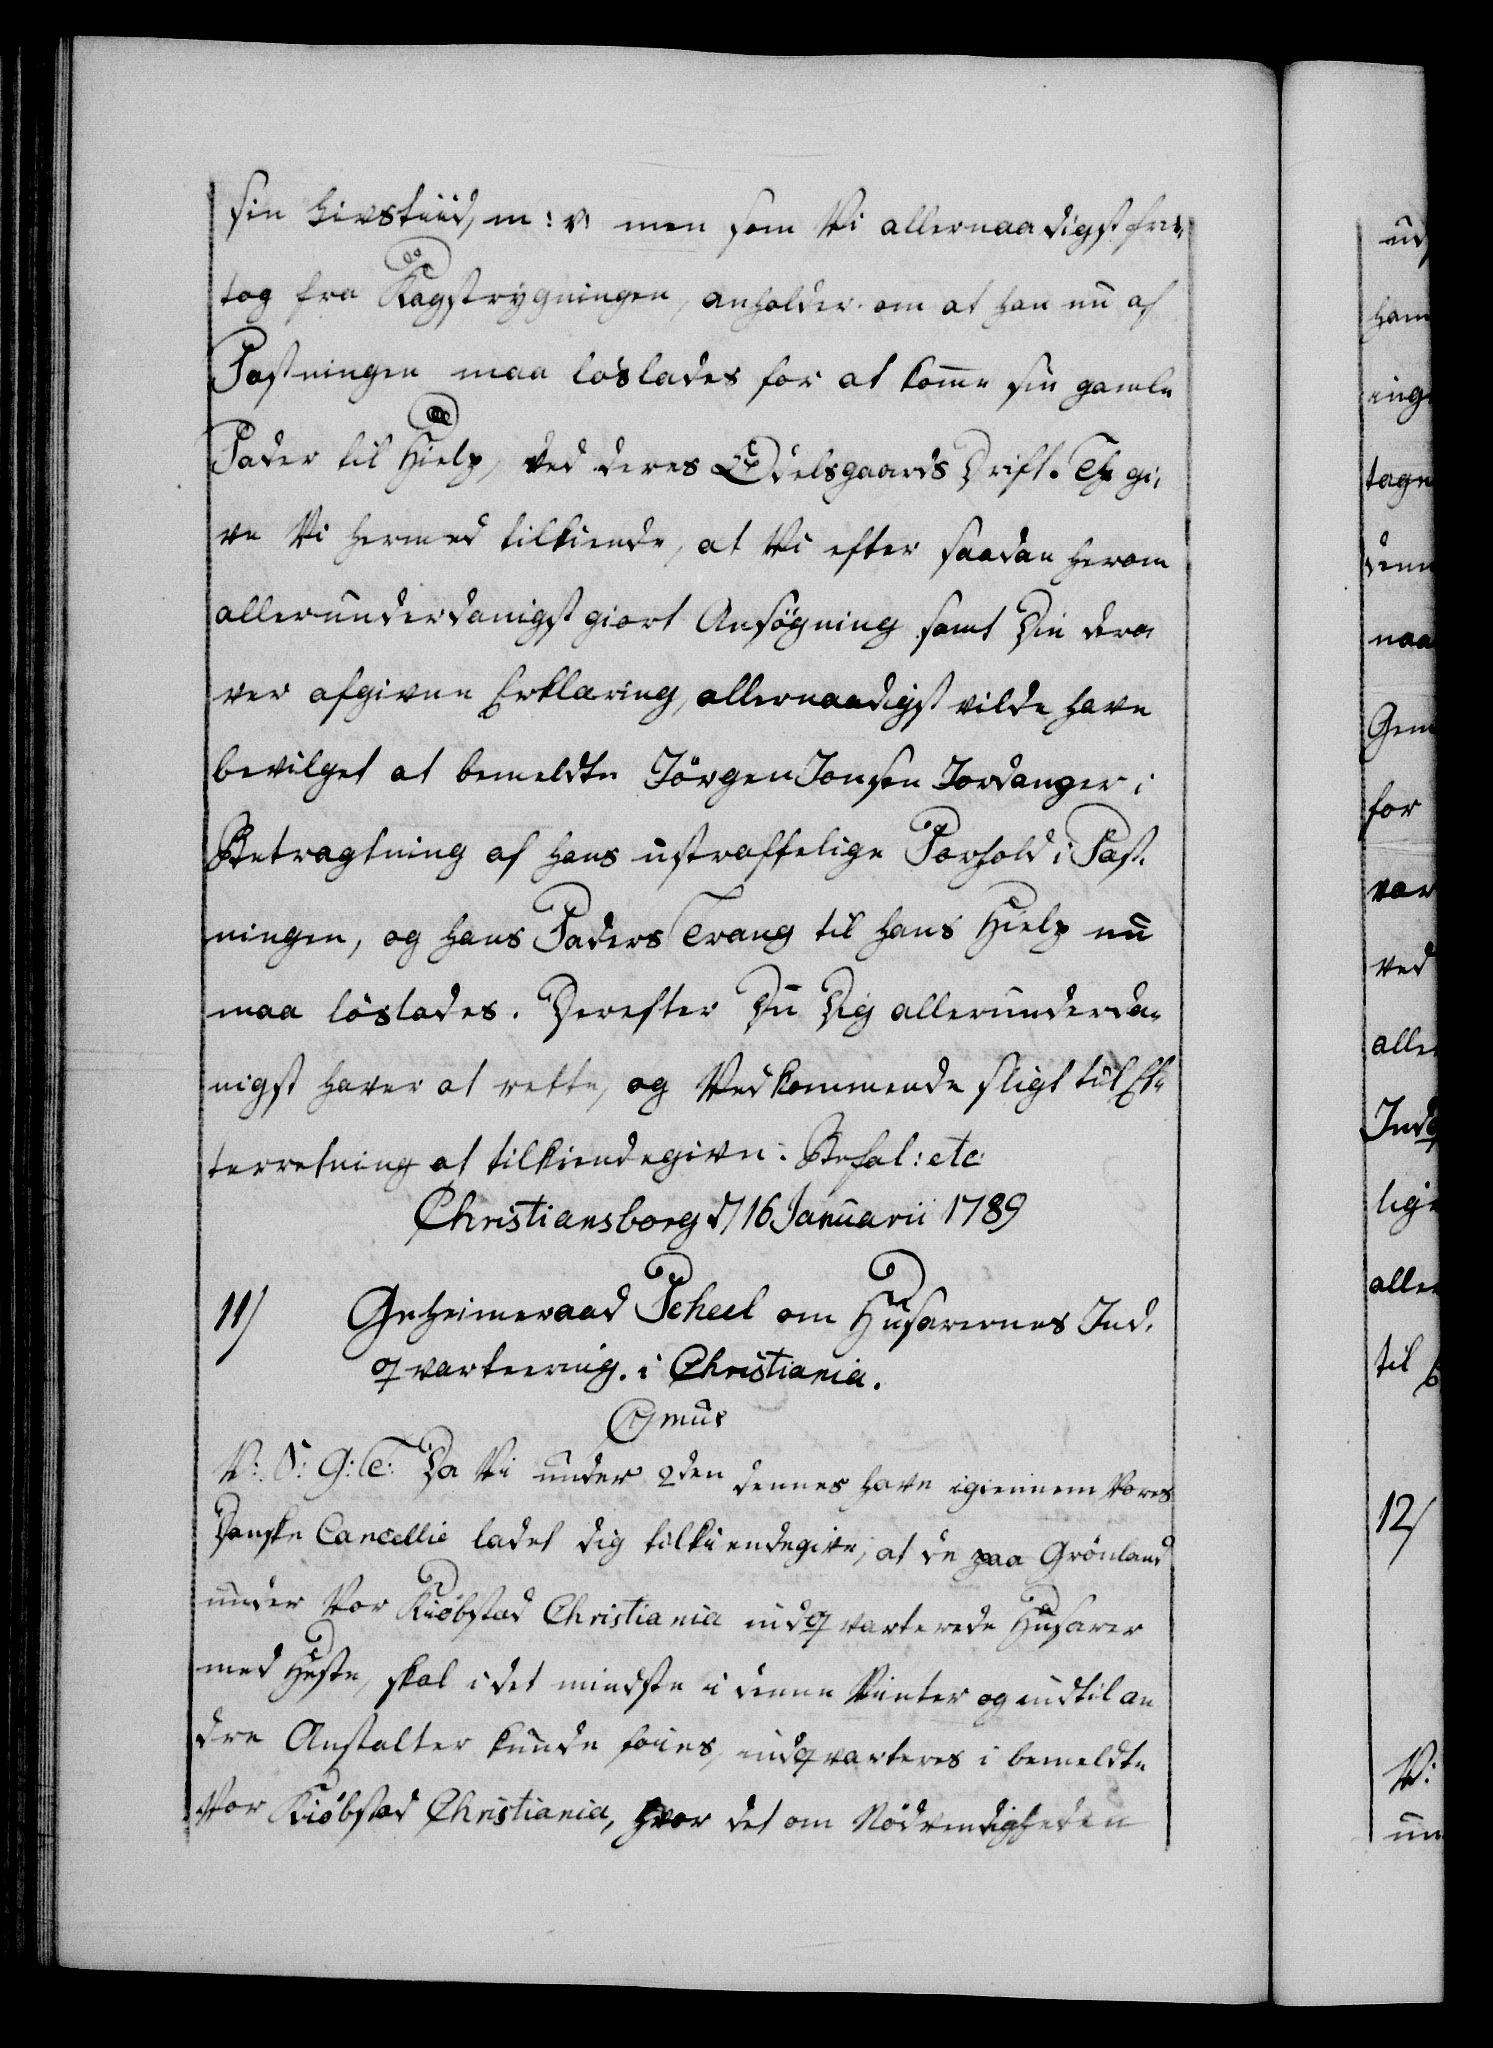 sin Livstiid, m: v: men som Vi allernaadigst fri-
tog fra Kagstrygningen, anholder om at han nu af
Fæstningen maa löslades for at komme sin gamle
Fader til Hielp, ved deres Odelsgaards Drift. Th gi-
ve Vi hermed tilkiende, at Vi efter saadan herom
allerunderdanigst giort Ansögning samt Din der o-
ver afgivne Erklæring, allernaadigst vilde have
bevilget at bemeldte Jörgen Jonsen Jordanger i
Betragtning af hans ustraffelige Forhold i Fæst-
ningen, og hans Faders Trang til hans Hielp nu
maa löslades. Derefter Du Dig allerunderda-
nigst haver at rette, og Vedkommende sligt til Ef-
terretning at tilkiendegive. Befal: etc
Christiansborg d/ 16 Januarii 1789
11/ Geheimeraad Scheel om Husarernes Ind-
qvarteering i Christiania.
C7mus
V: S: G: T: Da Vi under 2den dennes have igiennem Vores
Danske Cancellie ladet dig tilkiendegive, at de paa Grönland
under Vor Kiöbstad Christiania indqvarterede Husarer
med Heste, skal i det mindste i denne Vinter og indtil an
dre Anstalter kunde föies, indqvarteres i bemeldte
Vor Kiöbstad Christiania, hvor det om Nödvendigheden
ud
ham
inge
tage
denn
naa
Gem
for
var
ved
alle
Indq
lige
alle
til
12/
V:
un